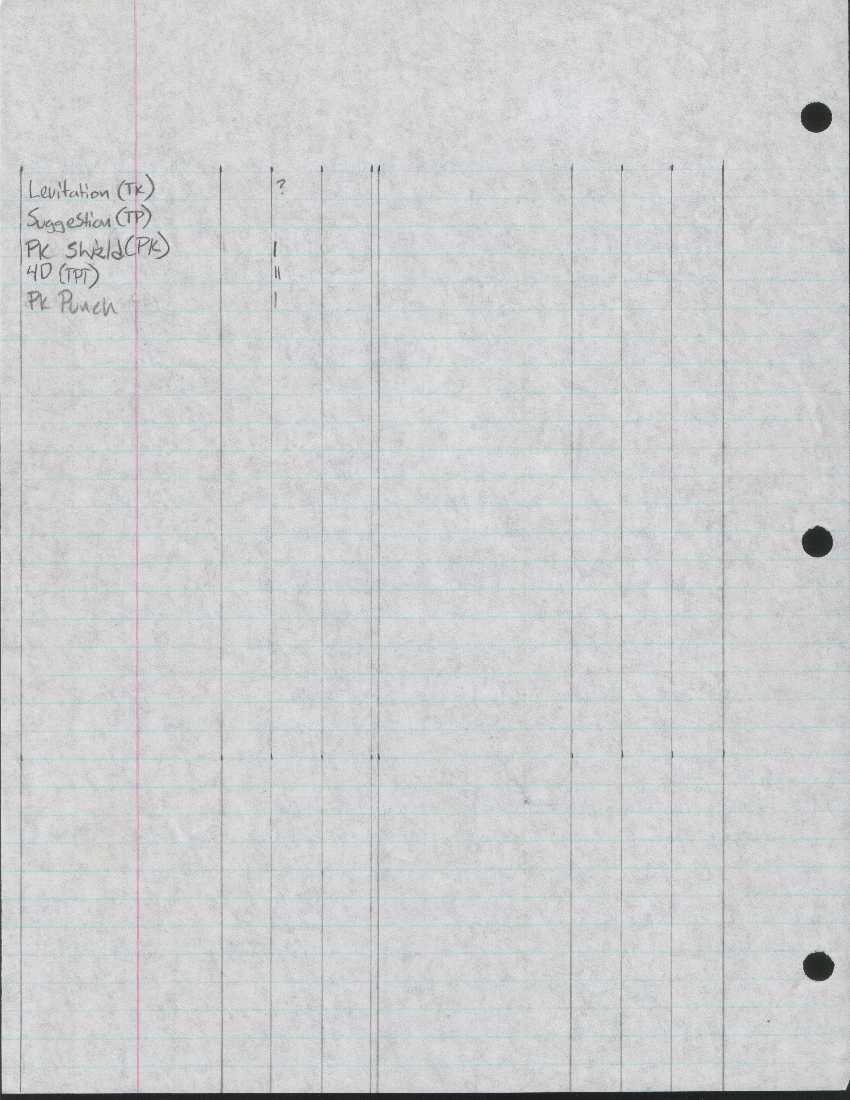 Levitation (TK) ?
Suggestion (TP)
PK Shield (PK) |
4D (TPT) ||
Pk Punch |